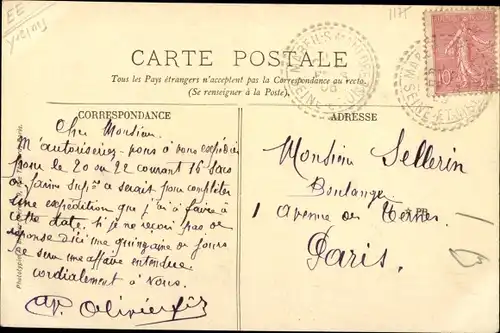 EE
1175
CARTE POSTALE
Tous les Pays étrangers n'acceptent pas la Correspondance au recto.
(Se renseigner à la Poste).
10
CORRESPONDANCE
ADRESSE
Cher Monsieur
M'autoriseriez-vous à vous expédier
pour le 20 ou 22 courant 16 sacs
de farine supre ce serait pour compléter
une expédition que j'ai à faire à
cette date. Si je ne reçoi pas de
reponse d'ici une quinzaine de jours
ce sera une affaire entendue
cordialement à Vous.
Olivier fils
Monsieur Sellerin
Boulanger
1 Avenue des Ternes
Paris.